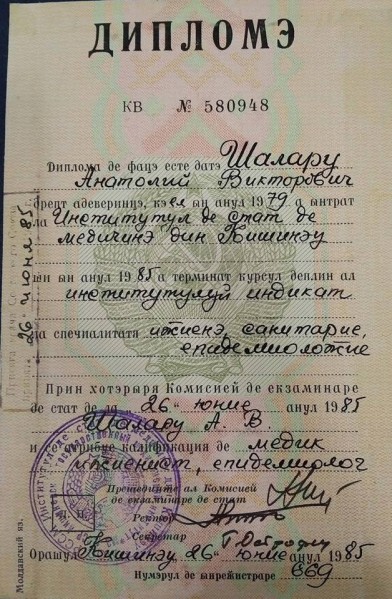 ДИПЛОМЭ
КВ № 580948
Диплома де фацэ есте датэ Шалару
Анатолий Викторович
дрепт адеверинцэ, кэ ел ын анул 1979 а ынтрат
ла Институтул де стат де
медичинэ дин Кишинэу
ши ын анул 1985 а терминат курсул деплин ал
институтулуй индикат
ла спечиалитатя ижиенэ, санитарие,
епидемиоложие
Прин хотэрыря Комисией де екзаминаре
де стат де ла „26" юние анул 1985
Шалару А. В.
и с-а атрибуит калификация де медик
ижиенист, епидемиолог
Прешединте ал Комисией
де екзаминаре де стат
Ректор
Секретар
Орашул Кишинэу 26" юние анул 1985
Нумэрул де ынрежистраре 669
Молдавский яз.
26 июня 85